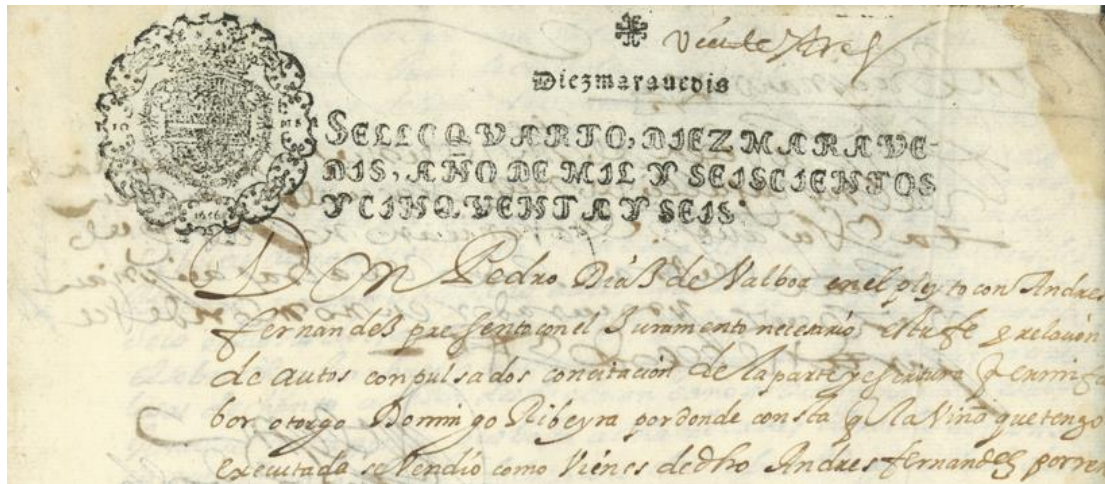 Diezmarauedis
SELLO QVARTO, DIEZ MARAVE-
DIS, AÑO DE MIL Y SEISCIENTOS
Y CINQVENTA Y SEIS.
1656
DON Pedro Diaz de Valboa en el pleyto con Andres
fernandez pressento con el Juramento necesario esta fe y relaçion
de autos conpulsados con citaçion de la parte y escritura q en mi fa
bor otorgo Domingo Ribeyra por donde consta q la Viña que tengo
executada se Vendio como Vienes de dho Andres fernandez